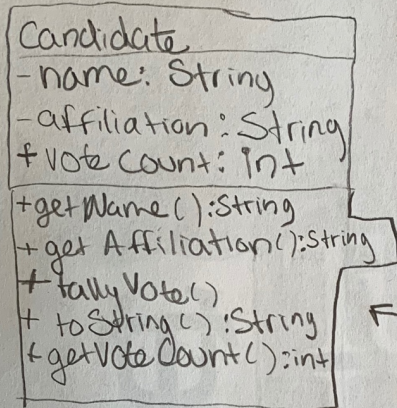 Candidate
- name: String
- affiliation: String
+ vote Count: int
+ getName(): String
+ get Affiliation(): String
+ tallyVote()
+ toString(): String
+ getVoteCount(): int